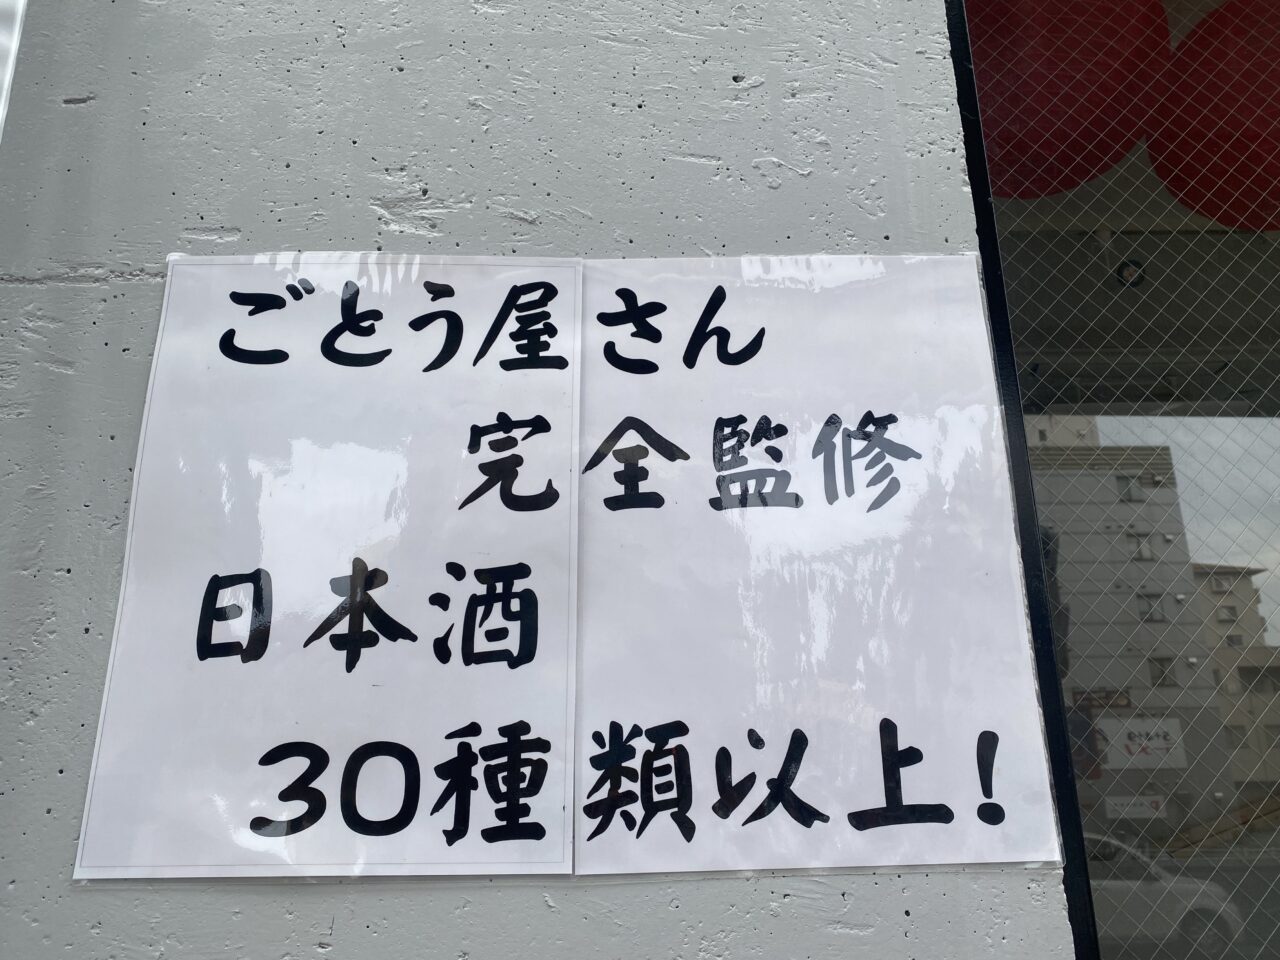 ごとう屋さん
完全監修
日本酒
30種類以上!